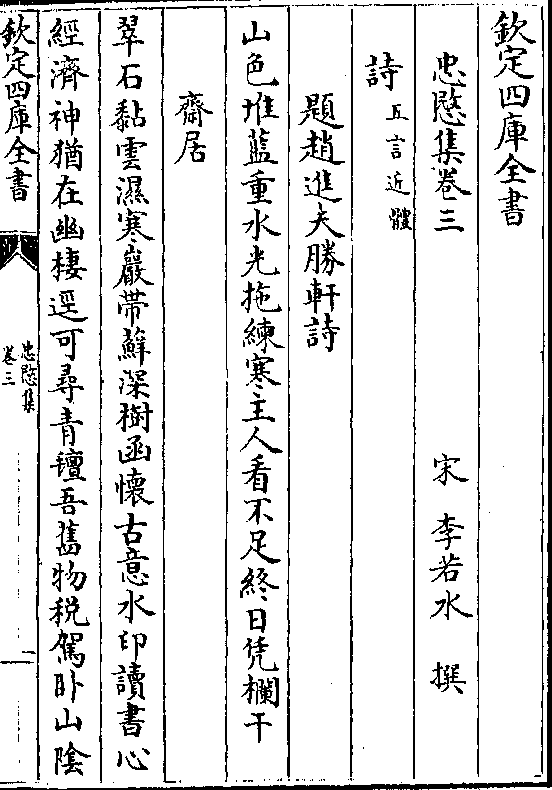 欽定四庫全書
忠愍集卷三
宋 李若水 撰
詩五言近體
題趙進夫勝軒詩
山色堆藍重水光拖練寒主人看不足終日凭欄干
齋居
翠石黏雲濕寒巖帶蘚深樹函懷古意水印讀書心
經濟神猶在幽棲逕可尋青氊吾舊物税駕卧山陰
欽定四庫全書
忠愍集
卷三
一